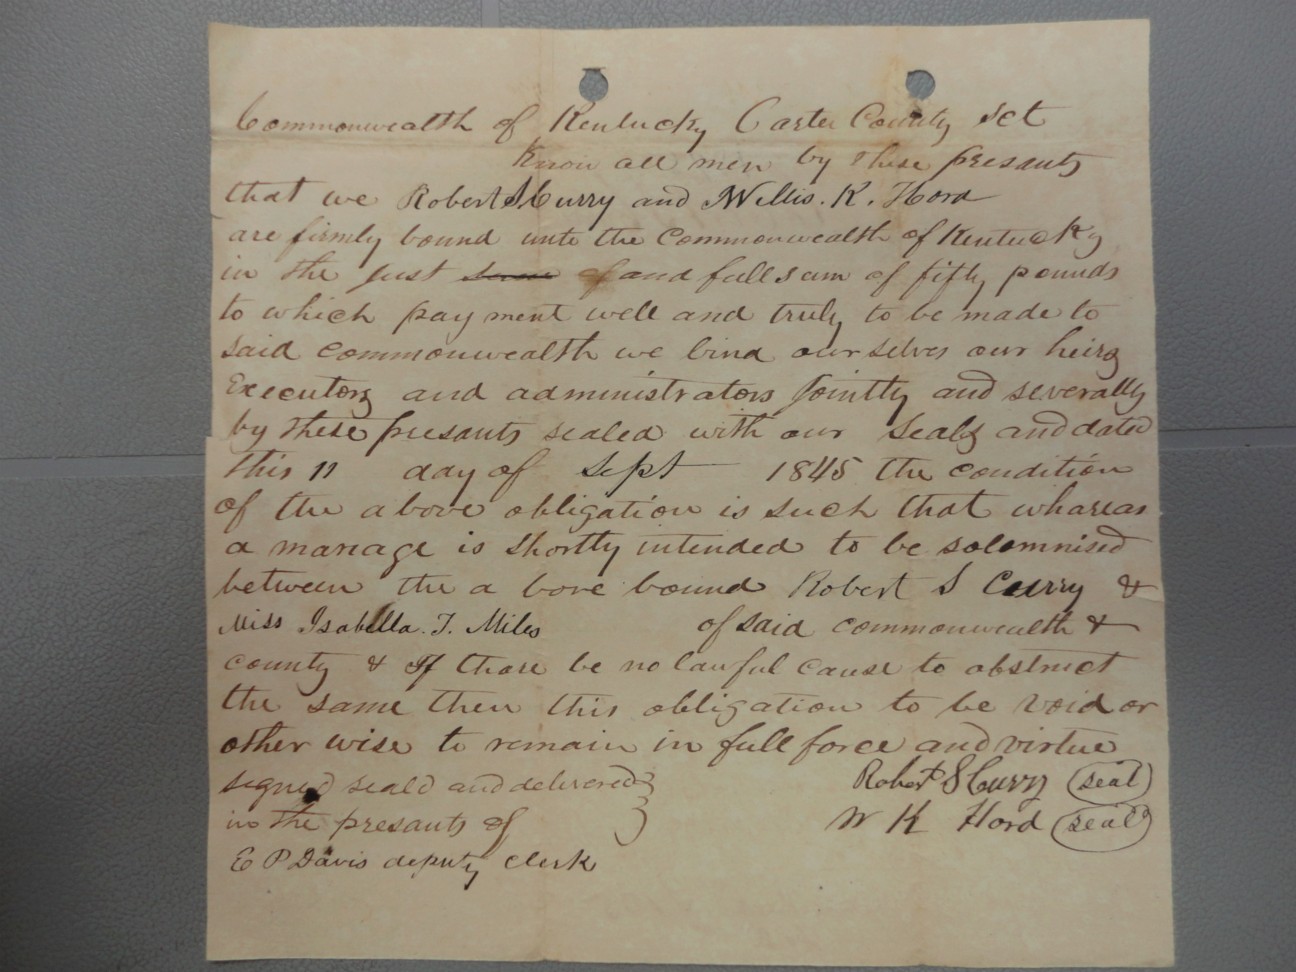 Commonwealth of Kentucky Carter County Sct
Know all men by these presants
that we Robert S Curry and Willis. K. Hord
are firmly bound unto the Commonwealth of Kentucky
in the just sum of and full sum of fifty pounds
to which pay ment well and truly to be made to
said commonwealth we bind our selves our heirs
Executors and administrators Jointly and severally
by these presants sealed with our Seals and dated
this 11 day of Sept 1845 the condition
of the above obligation is such that whareas
a mariage is shortly intended to be solomnised
between the a bove bound Robert S Curry &
Miss Isabella. T. Miles of said commonwealth &
county & If thare be no lawful cause to obstruct
the same then this obligation to be void or
other wise to remain in full force and virtue
signed seald and delivered Robert S Curry (seal)
in the presants of W K Hord (seal)
E P Davis deputy clerk